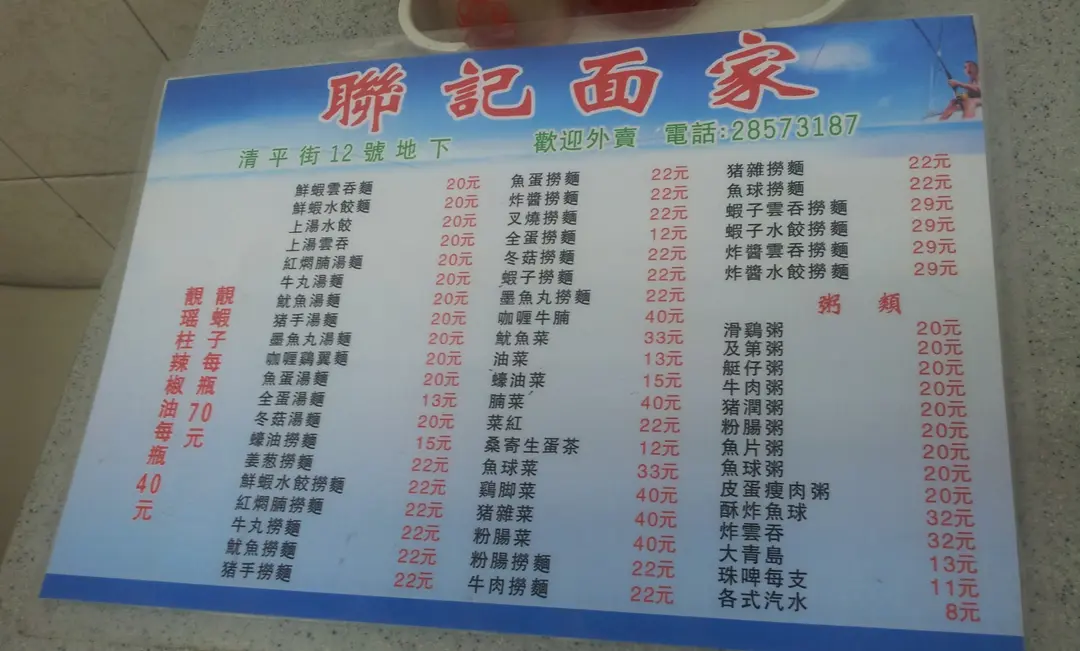 聯記面家
清平街12號地下 歡迎外賣 電話:28573187
鮮蝦雲吞麵 20元
鮮蝦水餃麵 20元
上湯水餃 20元
上湯雲吞 20元
紅燜腩湯麵 20元
牛丸湯麵 20元
魷魚湯麵 20元
猪手湯麵 20元
墨魚丸湯麵 20元
咖喱鷄翼麵 20元
魚蛋湯麵 20元
全蛋湯麵 13元
冬菇湯麵 20元
蠔油撈麵 15元
姜葱撈麵 22元
鮮蝦水餃撈麵 22元
紅燜腩撈麵 22元
牛丸撈麵 22元
魷魚撈麵 22元
猪手撈麵 22元
魚蛋撈麵 22元
炸醬撈麵 22元
叉燒撈麵 22元
全蛋撈麵 12元
冬菇撈麵 22元
蝦子撈麵 22元
墨魚丸撈麵 22元
咖喱牛腩 40元
魷魚菜 33元
油菜 13元
蠔油菜 15元
腩菜 40元
菜紅 22元
桑寄生蛋茶 12元
魚球菜 33元
鷄脚菜 40元
猪雜菜 40元
粉腸菜 40元
粉腸撈麵 22元
牛肉撈麵 22元
猪雜撈麵 22元
魚球撈麵 22元
蝦子雲吞撈麵 29元
蝦子水餃撈麵 29元
炸醬雲吞撈麵 29元
炸醬水餃撈麵 29元
粥類
滑鷄粥 20元
及第粥 20元
艇仔粥 20元
牛肉粥 20元
猪潤粥 20元
粉腸粥 20元
魚片粥 20元
魚球粥 20元
皮蛋瘦肉粥 20元
酥炸魚球 32元
炸雲吞 32元
大青島 13元
珠啤每支 11元
各式汽水 8元
觀蝦子每瓶70元
觀瑶柱辣椒油每瓶40元